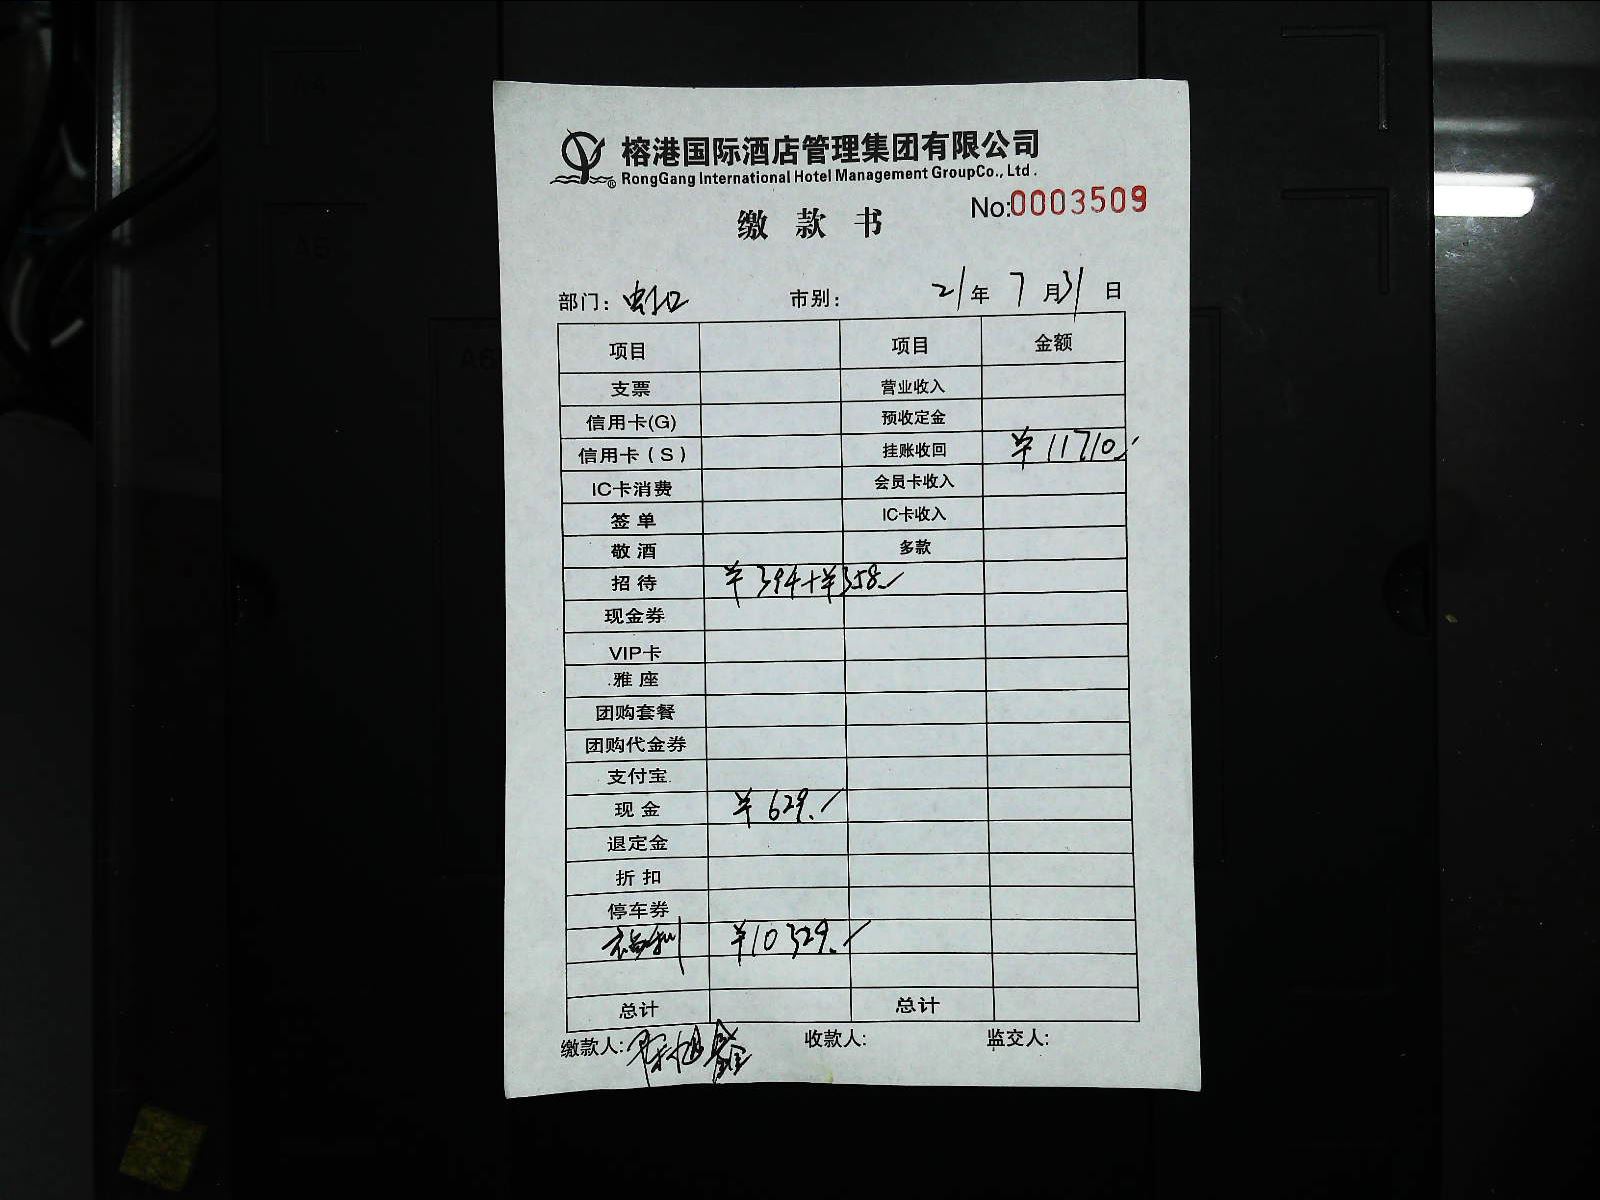 榕港国际酒店管理集团有限公司
RongGang International Hotel Management GroupCo., Ltd.
No:0003509
缴款书
部门: 虹口 市别: 21年 7月31日
项目 项目 金额
支票 营业收入
信用卡(G) 预收定金
信用卡(S) 挂账收回 ¥11710.
IC卡消费 会员卡收入
签单 IC卡收入
敬酒 多款
招待 ¥394+¥358.
现金券
VIP卡
雅座
团购套餐
团购代金券
支付宝
现金 ¥629.
退定金
折扣
停车券
福利 ¥10329.
总计 总计
缴款人: 收款人: 监交人: